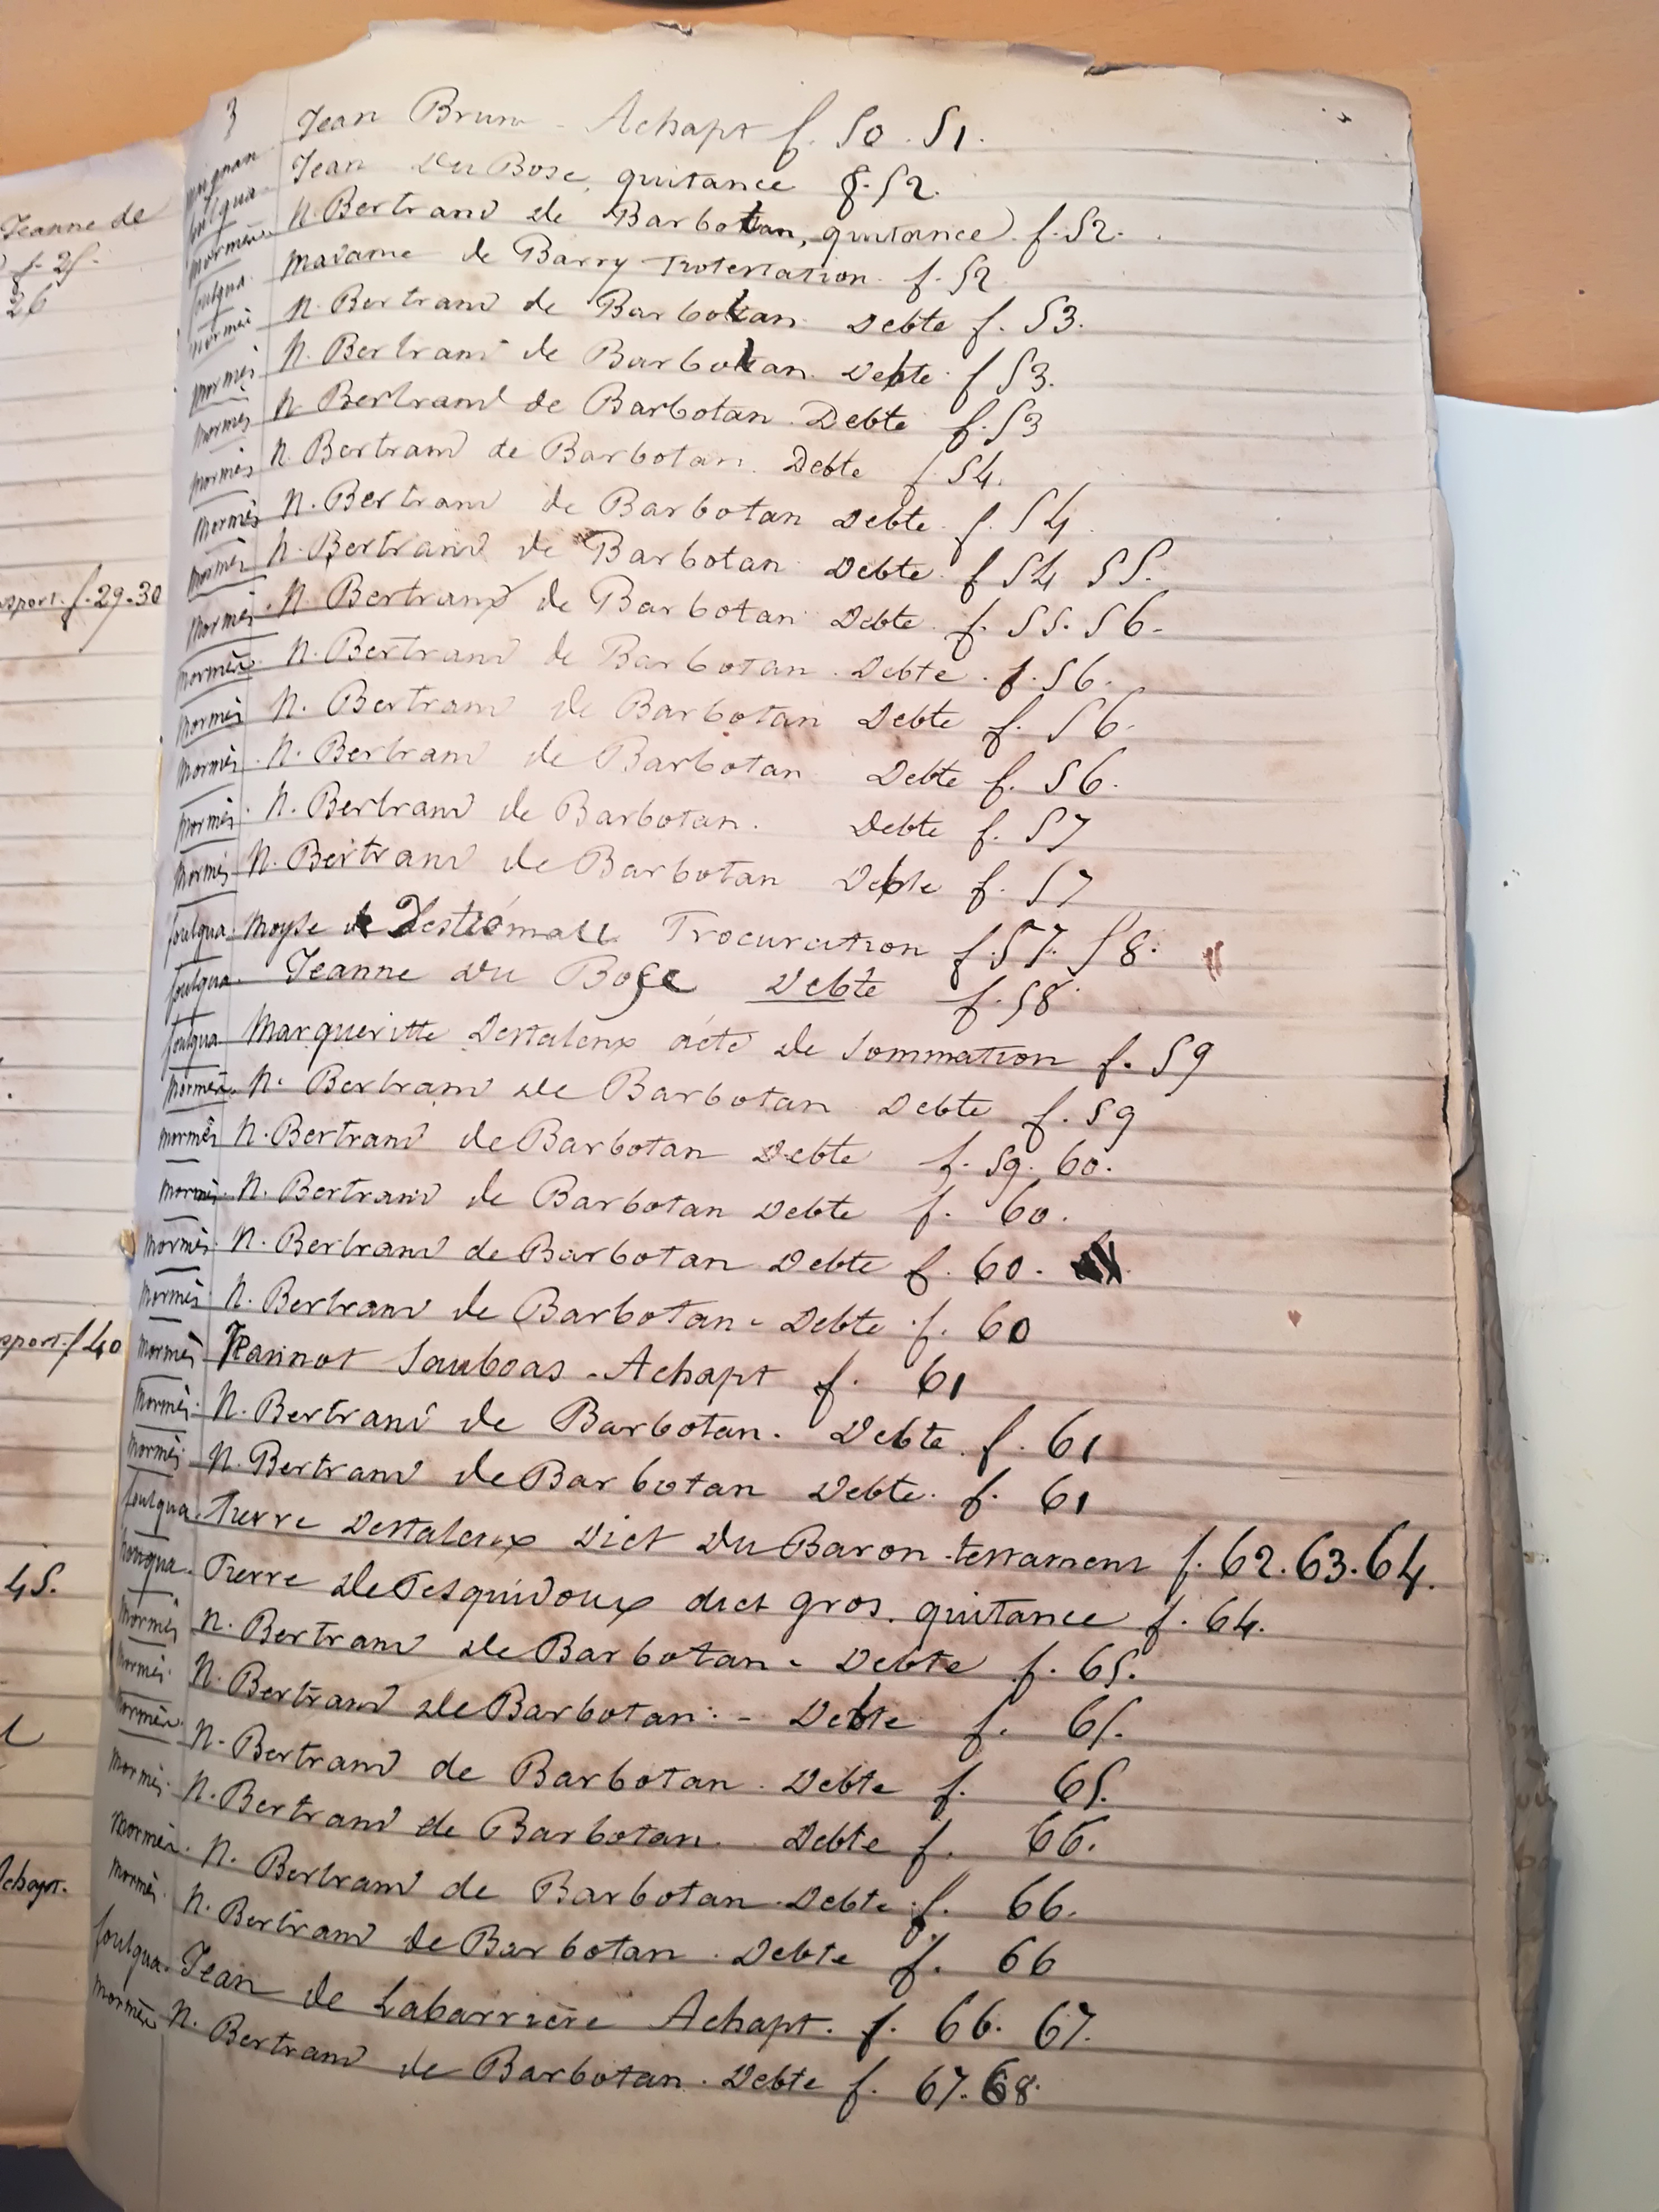 Jeanne de
f. 25.
26
sport. f. 29-30
sport. f 40
45.
Achapt.
3
Jean Brun - Achapt f. 50. 51.
maignan Jean Du Bosc, quitance f. 52.
foulqua N. Bertrand de Barbotan, quitance f. 52.
Mormès Madame de Barry Protestation. f. 52
foulqua N. Bertrand de Barbotan Debte f. 53.
Mormès N. Bertrand de Barbotan. Debte. f 53.
Mormès N. Bertrand de Barbotan. Debte f. 53
Mormès N. Bertrand de Barbotan. Debte f. 54.
Mormès N. Bertrand de Barbotan Debte. f. 54
Mormès N. Bertrand de Barbotan. Debte. f 54 55.
Mormès N. Bertrand de Barbotan Debte. f. 55. 56.
Mormès N. Bertrand de Barbotan. Debte. f. 56.
Mormès N. Bertrand de Barbotan Debte f. 56.
Mormès N. Bertrand de Barbotan Debte f. 56.
Mormès N. Bertrand de Barbotan. Debte f. 57
Mormès N. Bertrand de Barbotan Debte f. 57
foulqua Moyse de Procuration f. 57. 58.
foulqua. Jeanne Du Bosc Debte f. 58
foulqua Margueritte Destaleux acte de sommation f. 59
Mormès. N. Bertrand de Barbotan Debte f. 59
Mormès N. Bertrand de Barbotan Debte f. 59. 60.
Mormès. N. Bertrand de Barbotan Debte f. 60.
Mormès. N. Bertrand de Barbotan Debte f. 60.
Mormès N. Bertrand de Barbotan - Debte f. 60
Mormès Jeannot Sauboas - Achapt f. 61
Mormès. N. Bertrand de Barbotan. Debte. f. 61
Mormès. N. Bertrand de Barbotan Debte. f. 61
foulqua. Pierre Destaleux Dict Du Baron - testament f. 62. 63. 64.
houqua. Pierre de Pesquidoux dict gros. quitance f. 64.
Mormès N. Bertrand de Barbotan - Debte f. 65.
Mormès. N. Bertrand de Barbotan. - Debte f. 65.
Mormès N. Bertrand de Barbotan. Debte f. 65.
Mormès. N. Bertrand de Barbotan. Debte f. 66.
Mormès. N. Bertrand de Barbotan. Debte f. 66.
Mormès. N. Bertrand de Barbotan. Debte f. 66
foulqua. Jean de Labarrière Achapt. f. 66. 67.
Mormès N. Bertrand de Barbotan. Debte f. 67. 68.